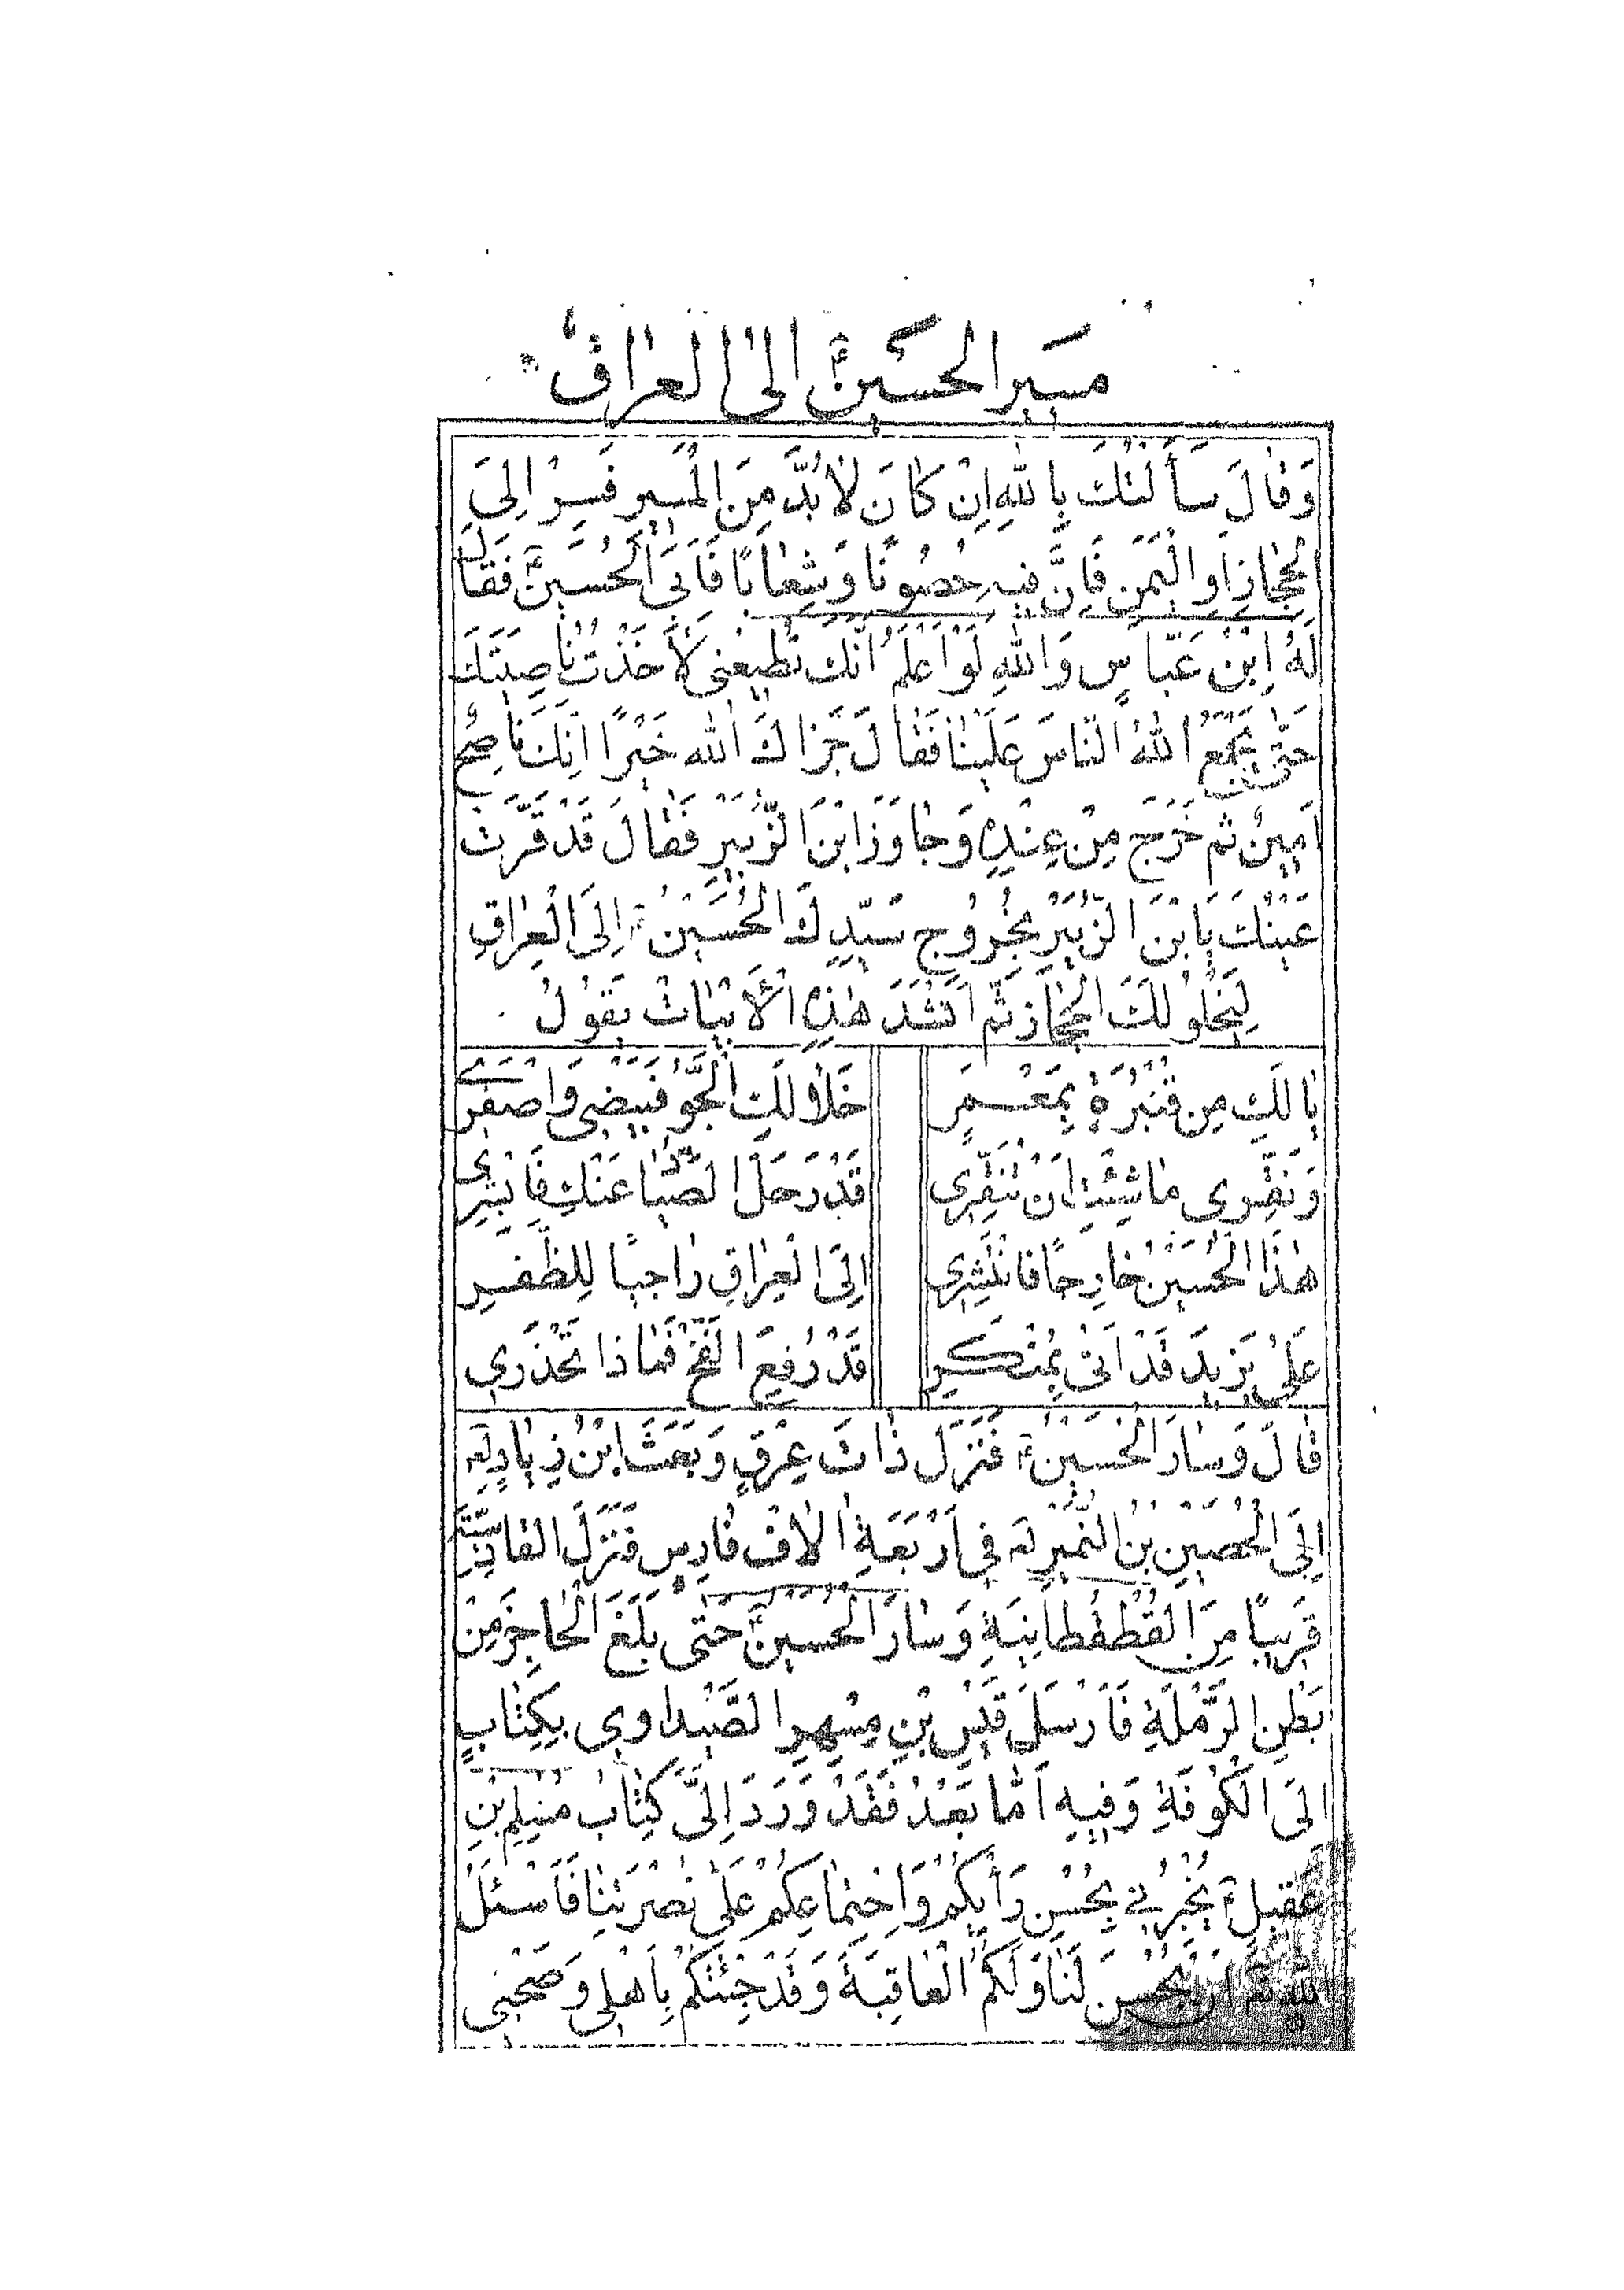 مسير الحسين ع الى العراق
وَقٰالَ سَأَلْتُكَ بِاللّٰهِ اِنْ كٰانَ لاٰبُدَّ مِنَ الْمَسيرِ فَسِرْ اِلىَ
الْحِجٰازِ اَوِ الْيَمَنِ فَاِنَّ فيهِ حُصُونًا وَشِعٰابًا فَاَبَى الْحُسَيْنُ ع فَقٰالَ
لَهُ اِبْنُ عَبّٰاسٍ وَاللّٰهِ لَوْ اَعْلَمُ اَنَّكَ تُطيعُنى لَأَخَذْتُ نٰاصِيَتَكَ
حَتّٰى يَجْمَعَ اللّٰهُ النّٰاسَ عَلَيْنٰا فَقٰالَ جَزٰاكَ اللّٰه خَيْرًا اِنَّكَ نٰاصِحٌ
اَمينٌ ثم خَرَجَ مِنْ عِنْدِهِ وَجٰاوَزَ ابْنَ الزُّبَيْرِ فَقٰالَ قَدْ قَرَّتْ
عَيْنُكَ يَابْنَ الزُّبَيْرِ بِخُرُوجِ سَيِّدِكَ الْحُسَيْنِ ع اِلىَ الْعِرٰاقِ
لِيَخْلُوَ لَكَ الْحِجٰازُ ثُمَّ اَنْشَدَ هٰذِهِ الْأَبْيٰاتْ يَقُولُ
يٰا لَكِ مِن قُنْبُرَةٍ بِمَعْمَرِ خَلاٰ لَكِ الْجَوُّ فَبيضى وَاصْفِرى
وَنَقِّرى مٰا شِئْتِ اَنْ تُنَقِّرى قَدْ رَحَلَ الصَّيّٰادُ عَنْكِ فَابْشِرى
هٰذَا الْحُسَيْنُ خٰارِجًا فَانْتَشِرى اِلىَ الْعِرٰاقِ رٰاجيًا لِلظَّفَرِ
عَلٰى يَزيدَ قَدْ اَتىٰ بِمُنْكَرِ قَدْ رُفِعَ الْفَخُّ فَمٰاذٰا تَحْذَرى
قٰالَ وَسٰارَ الْحُسَيْنُ ع فَنَزَلَ ذٰاتَ عِرْقٍ وَبَعَثَ ابْنُ زِيٰادٍ لعه
اِلىَ الْحُصَيْنِ بْنِ النُّمَيْرِ لعه في اَرْبَعَةِ اٰلاٰفْ فٰارِسٍ فَنَزَلَ الْقٰادِسِيَّةَ
قَريبًا مِنَ الْقُطْقُطٰانِيَةِ وَسٰارَ الْحُسَيْنُ ع حَتّٰى بَلَغَ الْحٰاجِزَ مِنْ
بَطْنِ الرَّمْلَةِ فَاَرْسَلَ قَيْسِ بْنِ مِسْهِرِ الصَّيْداوى بِكِتٰابٍ
اِلىَ الْكُوفَةِ وَفيهِ اَمّٰا بَعْدُ فَقَدْ وَرَدَ اِلَىَّ كِتٰابُ مُسْلِمِ بْنِ
عَقيلٍ ع يُخْبِرُني بِحُسْنِ رَأْيِكُمْ وَاجْتِمٰاعِكُمْ عَلٰى نُصْرَتِنٰا فَأَسْئَلُ
اَنْ يُحْسِنَ لَنٰا وَلَكُمُ الْعٰاقِبَةَ وَقَدْ جِئْتُكُمْ بِاَهْلى وَصَحْبى